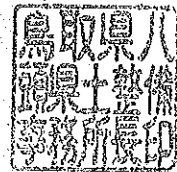 鳥取県八
頭県土整備
事務所長印